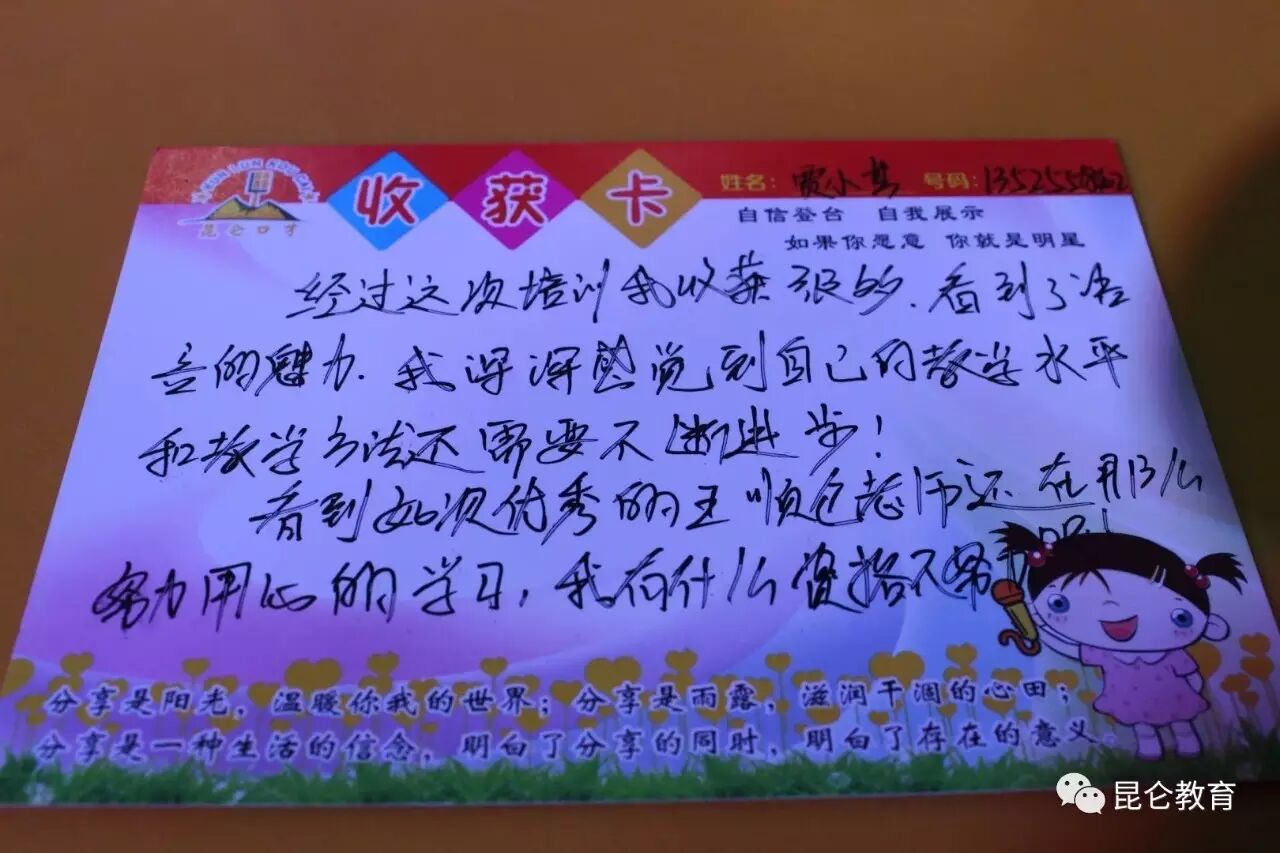 KUN LUN KOU CAI
昆仑口才
收获卡
姓名：贾小其 号码：135255
自信登台 自我展示
如果你愿意 你就是明星
经过这次培训我收获很多，看到了语
言的魅力.我深深感觉到自己的教学水平
和教学方法还需要不断进步！
看到如次优秀的王顺 老师还在那么
努力用心的学习，我有什么资格不努力呢！
分享是阳光，温暖你我的世界；分享是雨露，滋润干涸的心田；
分享是一种生活的信念，明白了分享的同时，明白了存在的意义。
昆仑教育